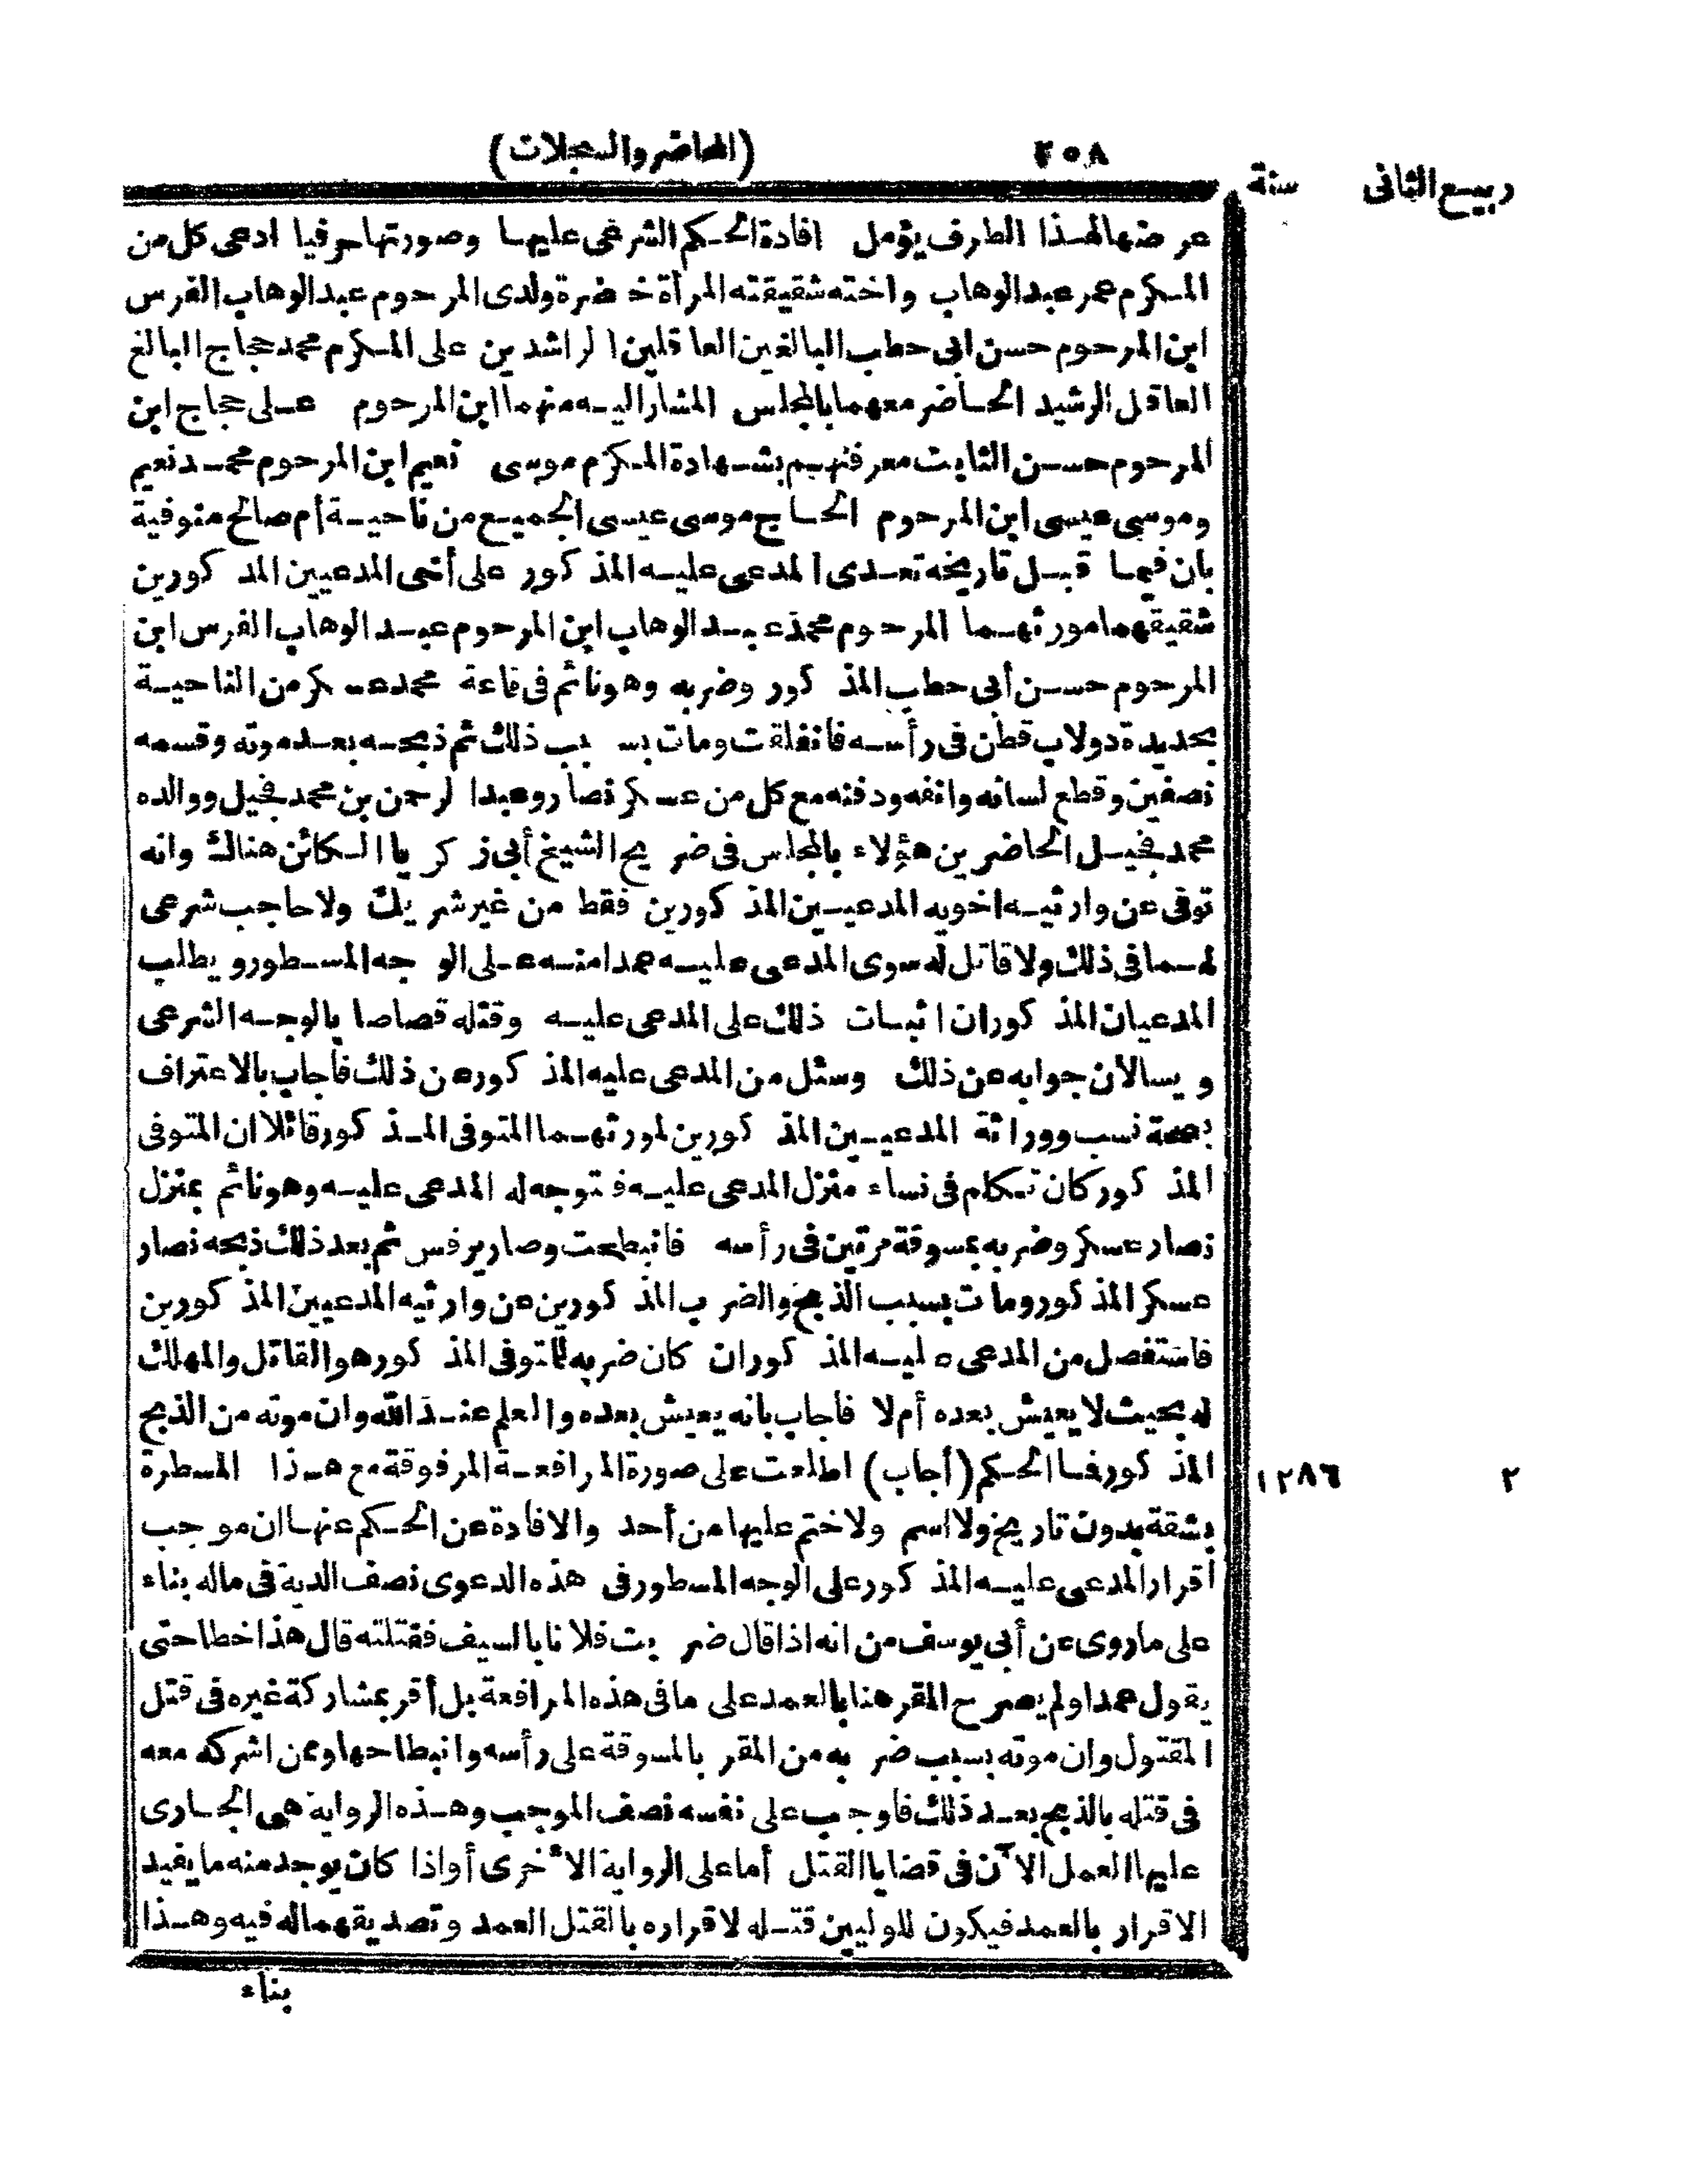 ٢٥٨ (المحاضر والسجلات)
ربيع الثانى سنة
عرضها لهذا الطرف يؤمل افادة الحكم الشرعى عليها وصورتها حرفيا ادعى كل من
المكرم عمر عبد الوهاب واخته شقيقته المرأة خضرة ولدى المرحوم عبد الوهاب الفرس
ابن المرحوم حسن ابى حطب البالغين العاقلين الراشدين على المكرم محمد حجاج البالغ
العاقل الرشيد الحاضر معهما بالمجلس المشار اليه منهما ابن المرحوم على حجاج ابن
المرحوم حسن الثابت معرفتهم بشهادة المكرم موسى نعيم ابن المرحوم محمد نعيم
وموسى عيسى ابن المرحوم الحاج موسى عيسى الجميع من ناحية أم صالح منوفية
بان فيما قبل تاريخه تعدى المدعى عليه المذكور على أخى المدعيين المذكورين
شقيقهما مورثهما المرحوم محمد عبد الوهاب ابن المرحوم عبد الوهاب الفرس ابن
المرحوم حسن أبى حطب المذكور وضربه وهو نائم فى قاعة محمد عسكر من الناحية
بحديدة دولاب قطن فى رأسه فانفلقت ومات بسبب ذلك ثم ذبحه بعد موته وقسمه
نصفين وقطع لسانه وانفه ودفنه مع كل من عسكر نصار وعبد الرحمن بن محمد فجيل ووالده
محمد فجيل الحاضرين هؤلاء بالمجلس فى ضريح الشيخ أبى زكريا الكائن هناك وانه
توفى عن وارثيه اخويه المدعيين المذكورين فقط من غير شريك ولا حاجب شرعى
لهما فى ذلك ولا قاتل له سوى المدعى عليه عمدا منه على الوجه المسطور ويطلب
المدعيان المذكوران اثبات ذلك على المدعى عليه وقتله قصاصا بالوجه الشرعى
ويسالان جوابه عن ذلك وسئل من المدعى عليه المذكور عن ذلك فأجاب بالاعتراف
بصحة نسب ووراثة المدعيين المذكورين لمورثهما المتوفى المذكور قائلا ان المتوفى
المذكور كان تكلم فى نساء منزل المدعى عليه فتوجه له المدعى عليه وهو نائم بمنزل
نصار عسكر وضربه بمسوقة مرتين فى رأسه فانبطحت وصار يرفس ثم بعد ذلك ذبحه نصار
عسكر المذكور ومات بسبب الذبح والضرب المذكورين عن وارثيه المدعيين المذكورين
فاستفصل من المدعى عليه المذكور ان كان ضربه للمتوفى المذكور هو القاتل والمهلك
له بحيث لا يعيش بعده أم لا فأجاب بانه يعيش بعده والعلم عند الله وان موته من الذبح
المذكور فما الحكم (أجاب) اطلعت على صورة المرافعة المرفوقة مع هذا المسطرة ١٢٨٦ ٢
بشقة بدون تاريخ ولا اسم ولا ختم عليها من أحد والافادة عن الحكم عنها ان موجب
أقرار المدعى عليه المذكور على الوجه المسطور فى هذه الدعوى نصف الدية فى ماله بناء
على ما روى عن أبى يوسف من انه اذا قال ضربت فلانا بالسيف فقتلته قال هذا خطا حتى
يقول عمدا ولم يصرح المقر هنا بالعمد على ما فى هذه المرافعة بل أقر بمشاركة غيره فى قتل
المقتول وان موته بسبب ضربه من المقر بالمسوقة على رأسه وانبطاحها وممن اشركه معه
فى قتله بالذبح بعد ذلك فأوجب على نفسه نصف الموجب وهذه الرواية هى الجارى
عليها العمل الآن فى قضايا القتل أما على الرواية الأخرى أو اذا كان يوجد منه ما يفيد
الاقرار بالعمد فيكون للوليين قتله لاقراره بالقتل العمد وتصديقهما له فيه وهذا
بناء